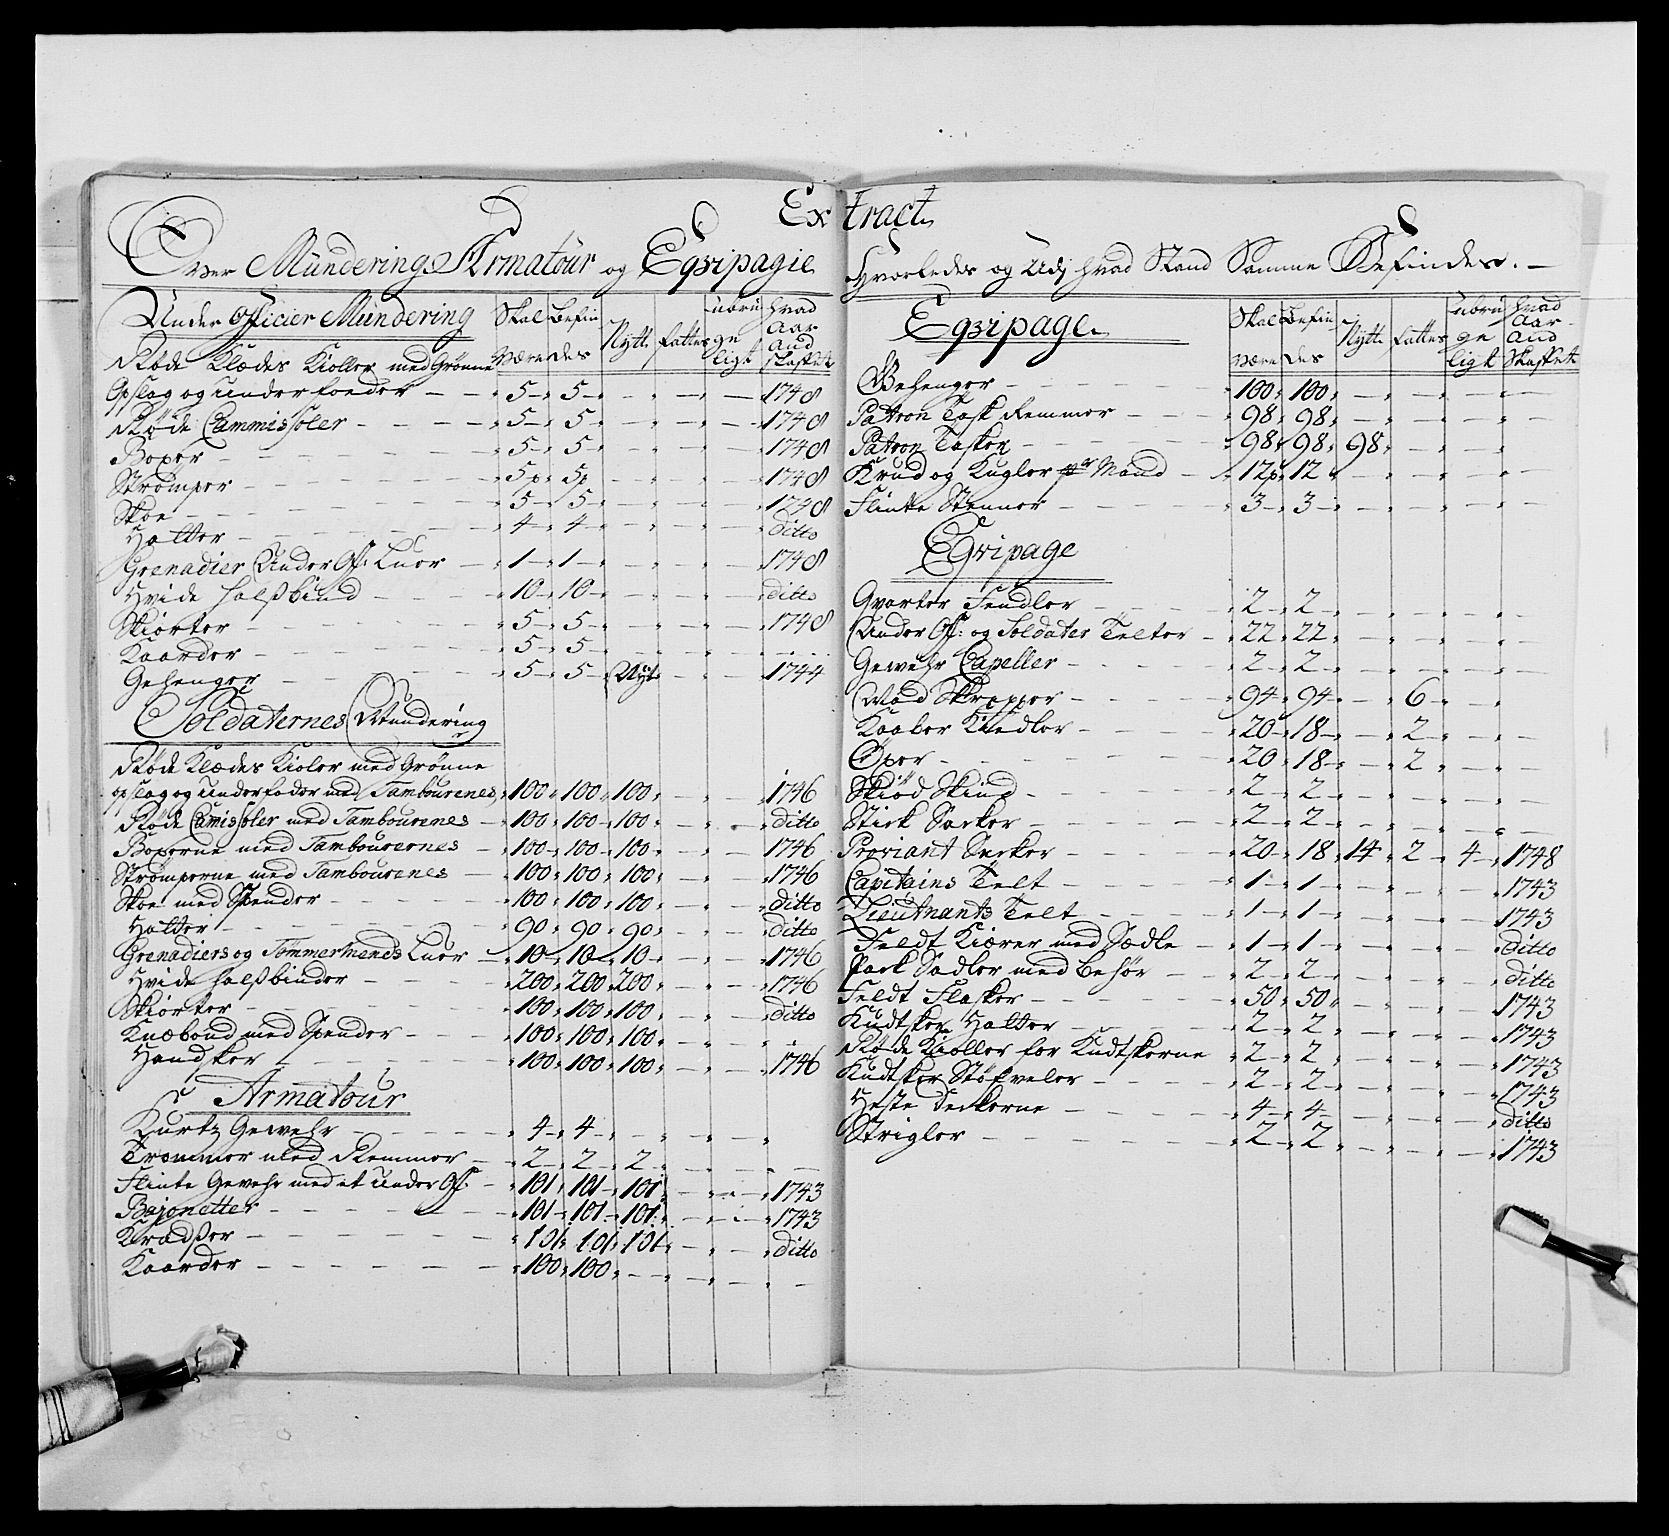 Extract
Over Münderings Armatour og Eqvipagie
Hvorledes og Udj hvad Stand Samme Befindes.
Under Officier Mündering | Skal Være | Befindes | Nytt | fattes | ubrügeligt | hvad Aar Aud skaffet
Røde Klædes Kioller med Grønne
Opslag og underfoeder — 5 — 5 — 1748
Røde Cammissoler — 5 — 5 — 1748
Boxer — 5 — 5 — 1748
Strømper — 5p — 5p — 1748
Skoe — 5 — 5 — 1748
Hatter — 4 — 4 — ditto
Grenadier Under Off: Luer — 1 — 1 — 1748
Hvide halsbind — 10 — 10 — ditto
Skiorter — 5 — 5 — 1748
Kaarder — 5 — 5
Gehenger — 5 — 5 Nyt — 1744
Soldaternes Mundering
Røde Klædes Kioler med Grønne
opslag og underfoder med Tambourenes 100 100 100 1746
Røde Camissoler med Tambourenes — 100 100 100 ditto
Boxerne med Tambourernes — 100 100 100 1746
Strømperne med Tambourenes — 100 100 100 1746
Skoe med Spender — 100 100 100 ditto
Hatter — 90 90 90 ditto
Grenadiers og Tømmermends Luer — 10 10 10 1746
Hvide halsbinder — 200 200 200 1746
Skiorter — 100 100 100 ditto
Knæbond med Spender — 100 100 100
Handsker — 100 100 100 1746
Armatour
Kurtz Gewehr — 4 — 4
Trommer med Remmer — 2 — 2 — 2
Flinte Gewehr med et under Off: — 101 101 101 1743
Bajonetter — 101 101 101 1743
Kradser — 101 101 101 ditto
Kaarder — 100 100
Eqvipage | Skal være | Befindes | Nytt | fattes | ubrügeligt | hvad Aar Aud Skaffett
Gehenger — 100 100
Patron Task Remmer — 98 98
Patron Tasker — 98 98 98
Krud og Kugler pr Mand — 12p 12
Flinte Stenner — 3 — 3
Eqvipage
Qvarter Fendler — 2 — 2
Under Off: og Soldater Telter — 22 22
Gewehr Capeller — 2 — 2
Mad Skrepper — 94 94 — 6
Kaaber Kiedler — 20 18 — 2
Øxer — 20 18 — 2
Skiød Skind — 2 — 2
Stick Sæcker — 2 — 2
Proviant Secker — 20 18 14 2 4 1748
Capitains Telt — 1 — 1 — 1743
Lieutnants Telt — 1 — 1 — 1743
Feldt Kiærer med Sædle — 1 — 1 — ditto
Pack Sadler med behør — 2 — 2 — ditto
Feldt Flasker — 50 50 — 1743
Kudtsker Hatter — 2 — 2 — 1743
Røde Kioller for Kudtskerne — 2 — 2 — 1743
Kudtsker Støfveler — 2 — 2 — 1743
Heste deckerne — 4 — 4 — ditto
Strigler — 2 — 2 — 1743